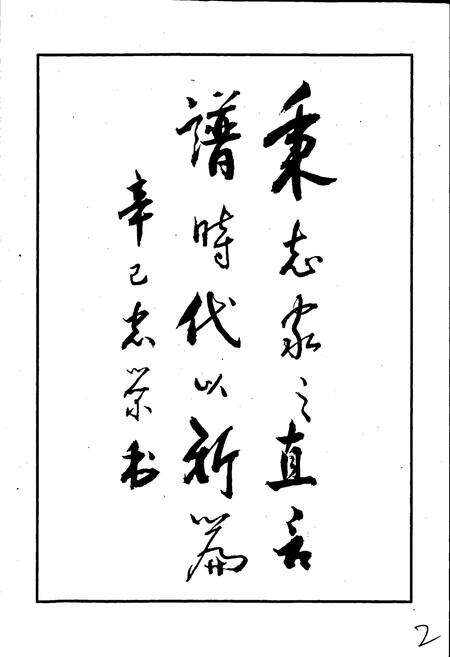 秉志家之直言
譜時代以新篇
辛巳忠榮书
2